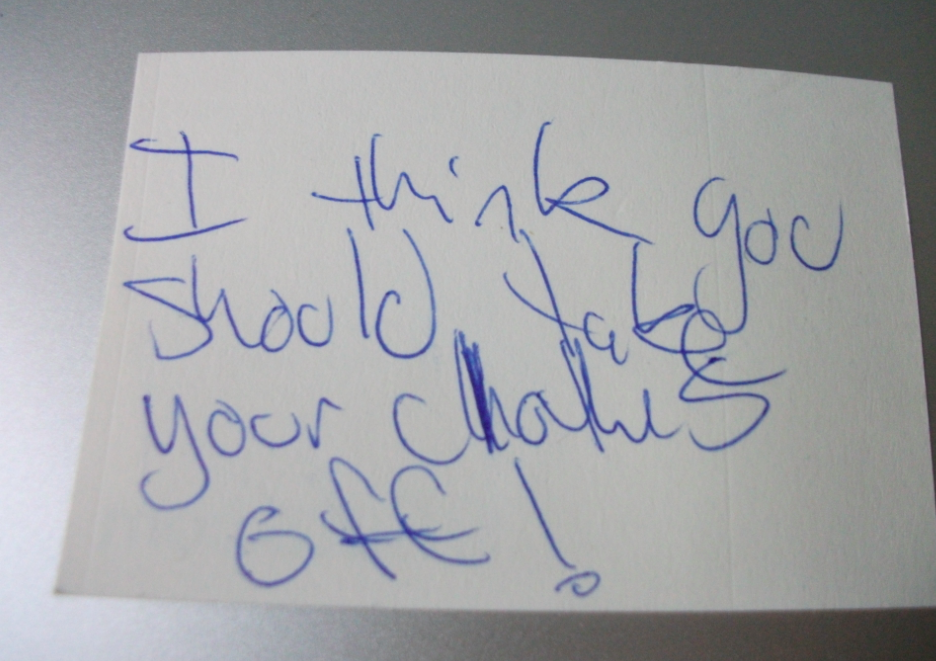 I think you
should take
your clothes
off!